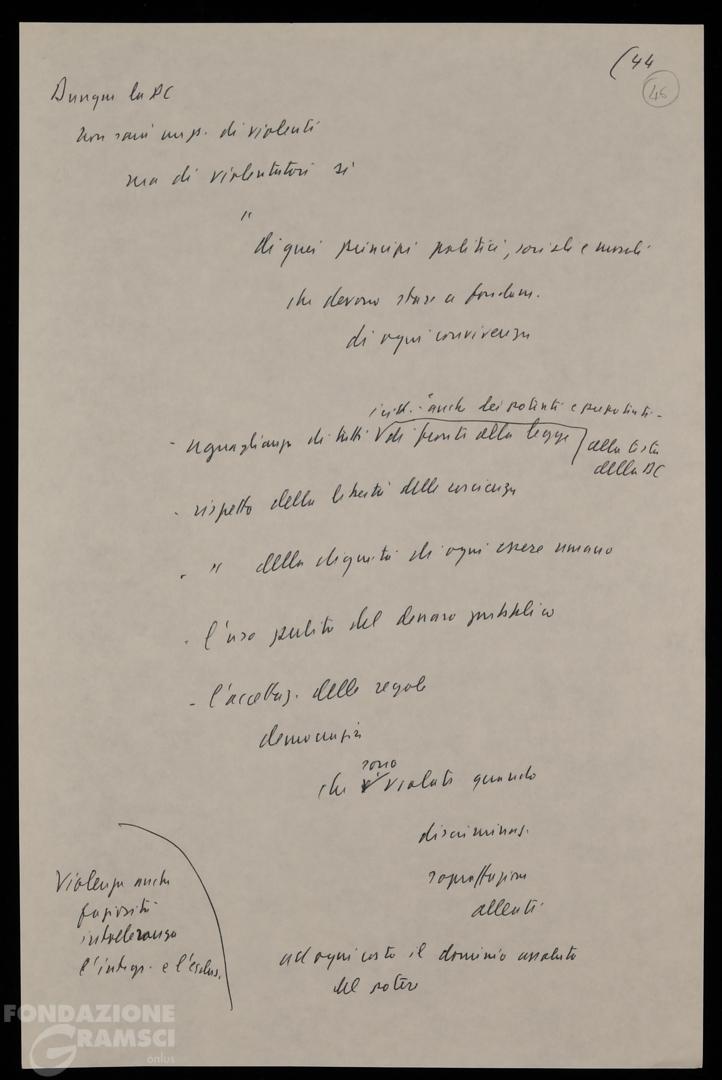 (44
46
Dunque la DC
non sarà un p. di violenti
ma di violentatori sì
"
di quei principi politici, sociali e morali
che devono stare a fondam.
di ogni convivenza
anche dei potenti e prepotenti -
- uguaglianza di tutti di fronte alla legge
alla testa
della DC
- rispetto della libertà delle coscienze
- " della dignità di ogni essere umano
- l'uso pulito del denaro pubblico
- l'accettaz. delle regole
democrazia
sono
che violate quando
discriminaz.
sopraffazioni
ad ogni costo il dominio assoluto
del potere
Violenza anche
faziosità
intolleranza
l'integr. e l'esclus.
FONDAZIONE
GRAMSCI
onlus